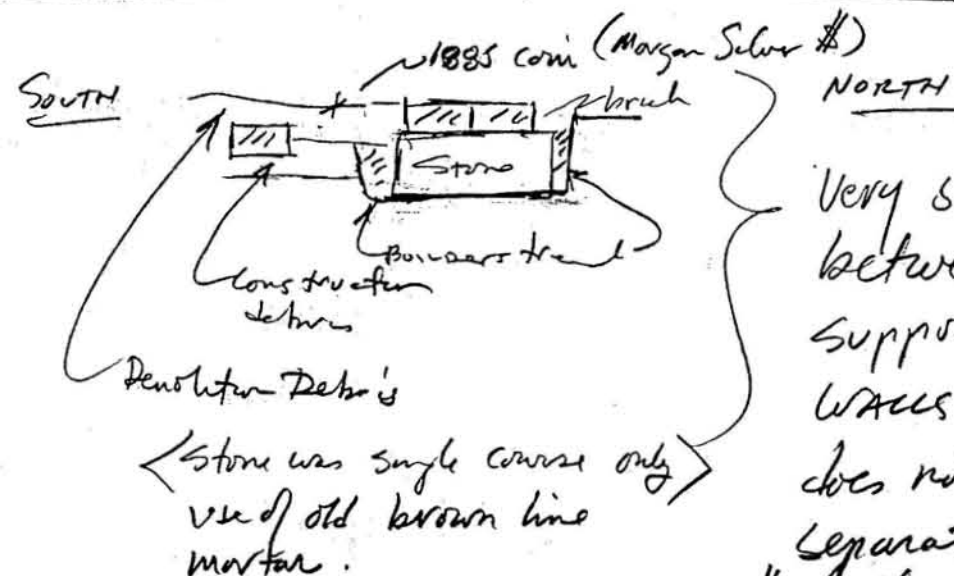 1885 coin (Morgan Silver $)
SOUTH
brick
NORTH
Stone
Builders trench
Construction
debris
Demolition Debris
<Stone was single course only>
use of old brown lime
mortar.
Very s
betwe
suppo
WALLS
does no
separa